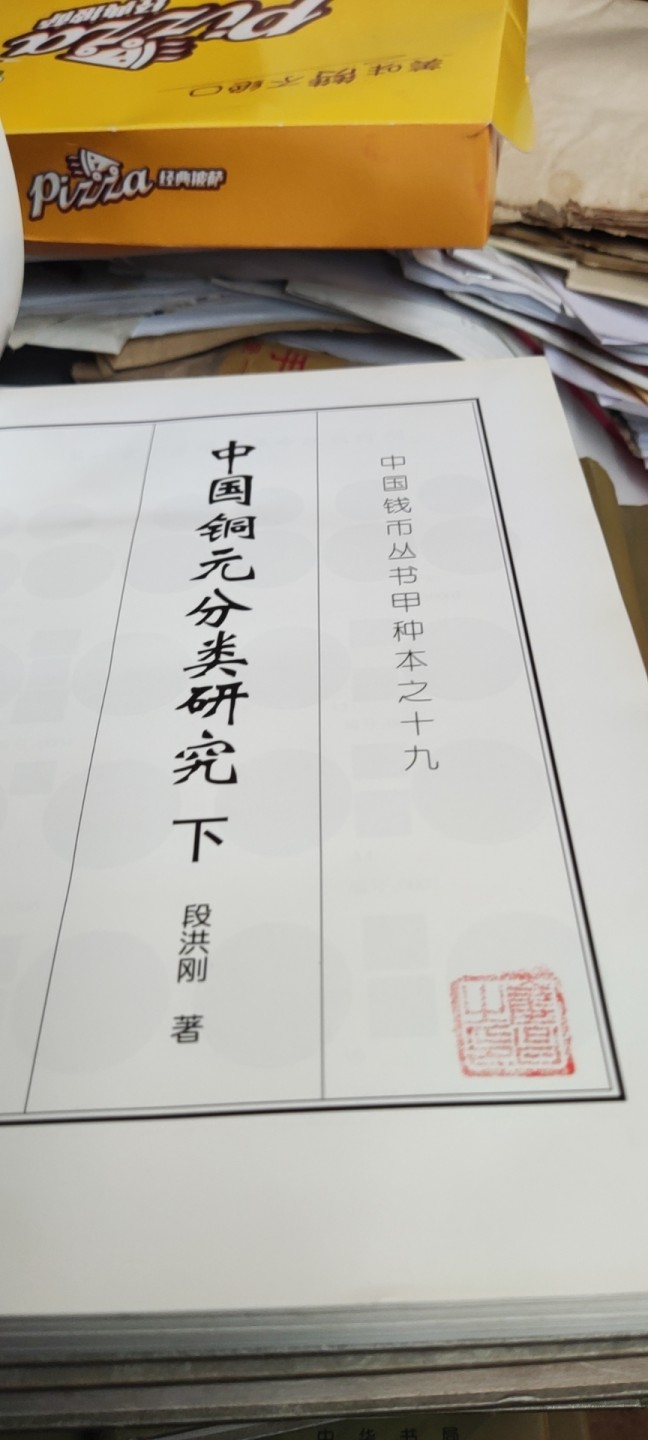 Pizza
经典披萨
美味馋不绝口
Pizza 经典披萨
中国钱币丛书甲种本之十九
中国铜元分类研究 下
段洪刚 著
中华书局